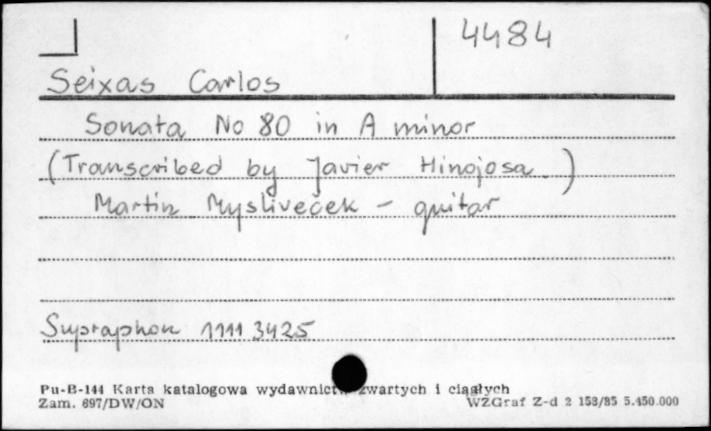 4484
Seixas Carlos
Sonata No 80 in A minor
(Transcribed by Javier Hinojosa)
Martin Mysliveček - guitar
Supraphon 1111 3425
Pu-B-144 Karta katalogowa wydawnictw zwartych i ciągłych
Zam. 697/DW/ON WZGraf Z-d 2 153/85 5.450.000